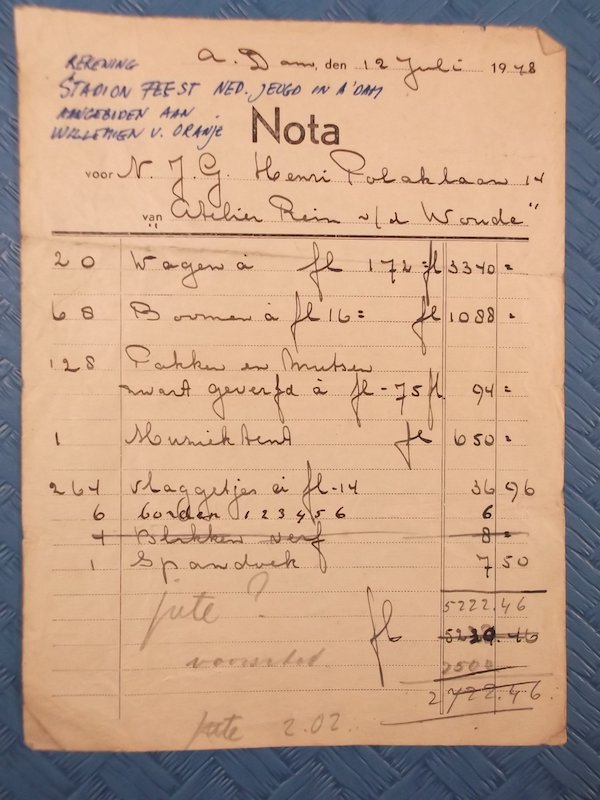 REKENING
STADION FEEST NED. JEUGD IN A'DAM
AANGEBODEN AAN
WILLEMIEN V. ORANJE
A. Dam, den 12 Juli 1948
Nota
voor N. J. G. Henri Polaklaan 14
van "Atelier Rein v/d Woude"
20 Wagen à fl 172 = fl 3340 =
68 Boomen à fl 16 = fl 1088 =
128 Pakken en Mutsen
zwart geverfd à fl -75 fl 94 =
1 Muziektent fl 650 =
264 vlaggetjes à fl -14 36 96
6 borden 1 2 3 4 5 6 6
4 Blikken verf 8 =
1 Spandoek 7 50
jute ?
5222.46
fl 5230.46
voorschot 2500
2722.46
jute 2.02.